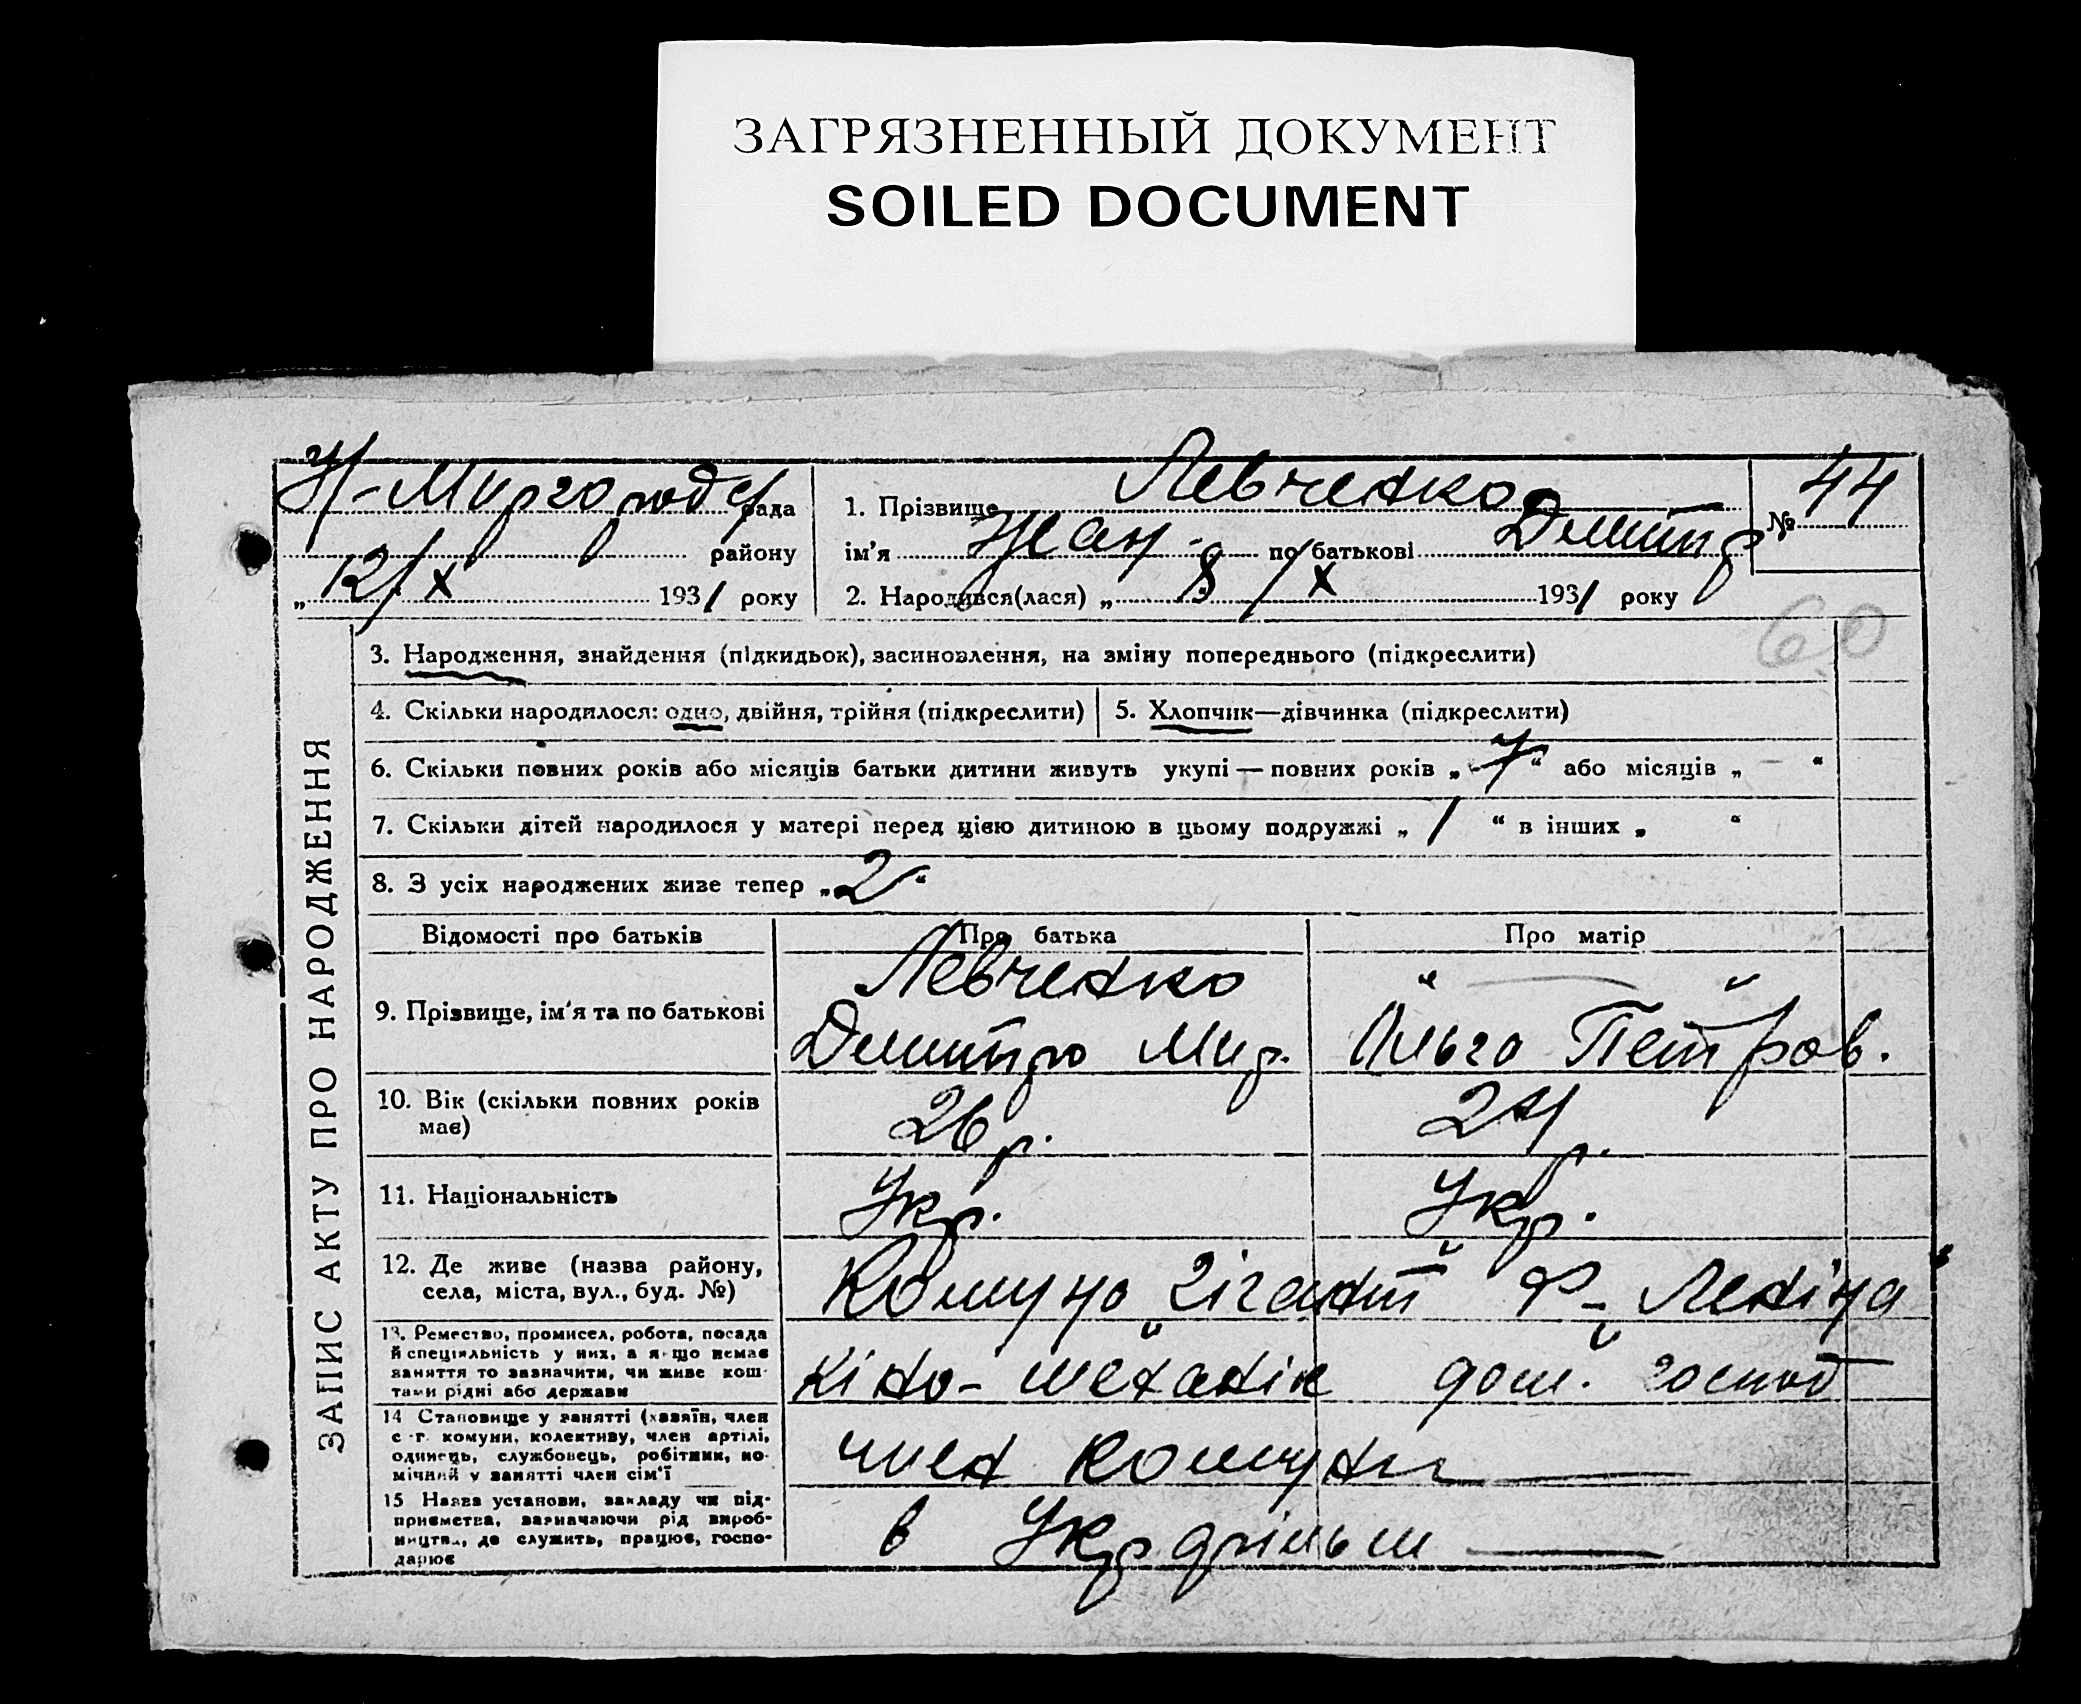 ЗАГРЯЗНЕННЫЙ ДОКУМЕНТ
SOILED DOCUMENT
Н-Миргородс рада
району
„ 12/X 1931 року
1. Прізвище Левченко
ім'я Жан по батькові Дмитр
2. Народився(лася) „ 8/X 1931 року
№ 44
60
ЗАПИС АКТУ ПРО НАРОДЖЕННЯ
3. Народження, знайдення (підкидьок), засиновлення, на зміну попереднього (підкреслити)
4. Скільки народилося: одно, двійня, трійня (підкреслити)
5. Хлопчик—дівчинка (підкреслити)
6. Скільки повних років або місяців батьки дитини живуть укупі — повних років „ “ або місяців „ — “
7. Скільки дітей народилося у матері перед цією дитиною в цьому подружжі „ 1 “ в інших „ “
8. З усіх народжених живе тепер „ 2 “
Відомості про батьків
Про батька
Про матір
9. Прізвище, ім'я та по батькові
Левченко
Дмитро Мир.
„ — “
Ольга Петров.
10. Вік (скільки повних років
має)
26 р.
24 р.
11. Національність
Укр.
Укр.
12. Де живе (назва району,
села, міста, вул., буд. №)
Комуна „Гігант“ Ф- „Леніна“
13. Ремество, промисел, робота, посада
й спеціяльність у них, а якщо немає
заняття то зазначити, чи живе кош-
тами рідні або держави
кіно-механік
дом. господ
14 Становище у занятті (хазяїн, член
с.-г. комуни, колективу, член артілі,
одинець, службовець, робітник, по-
мічний у занятті член сім'ї
член комуни —
15 Назва установи, закладу чи під-
приємства, зазначаючи рід вироб-
ництва, де служить, працює, госпо-
дарює
в Укрфільм —